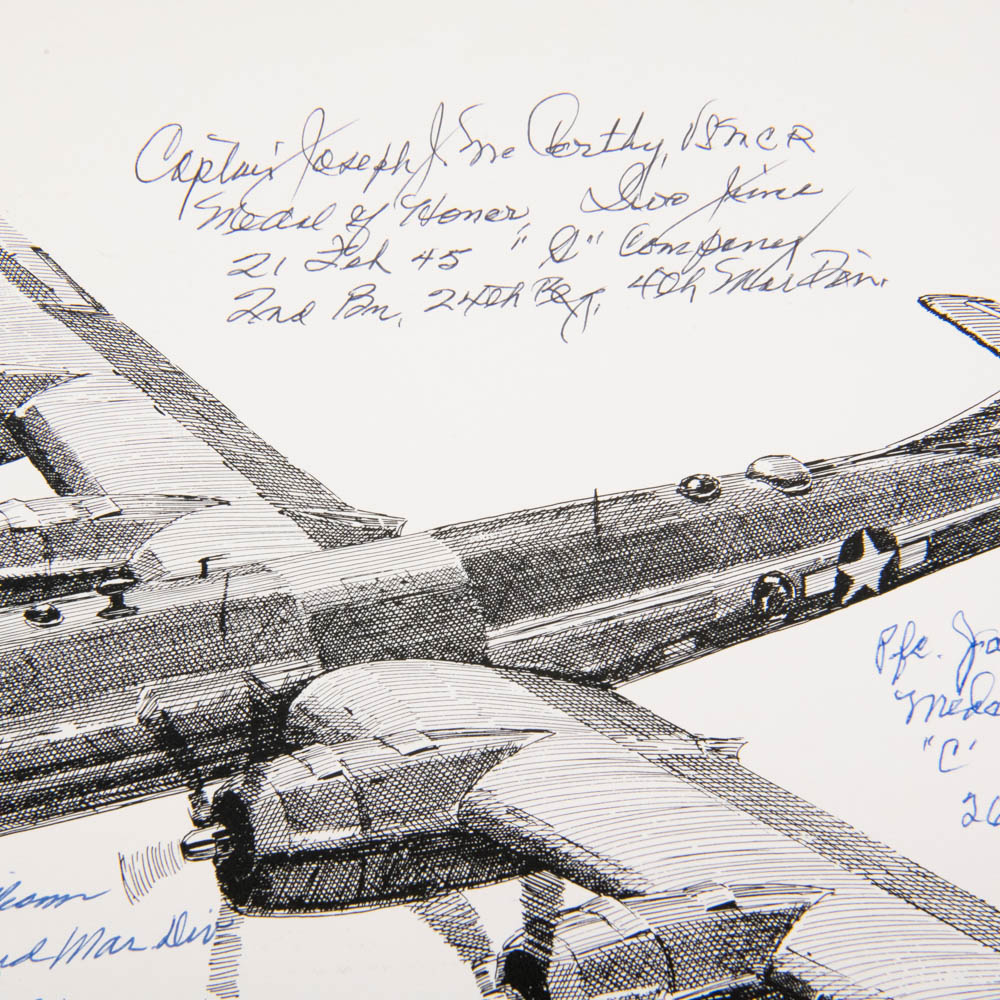 Captain Joseph J. Mc Carthy, USMCR
Medal of Honor, Iwo Jima
21 Feb 45 "G" Company
2nd Bn, 24th Reg, 4th Mar Div.
Pfc.
"C"
26
Mar Div